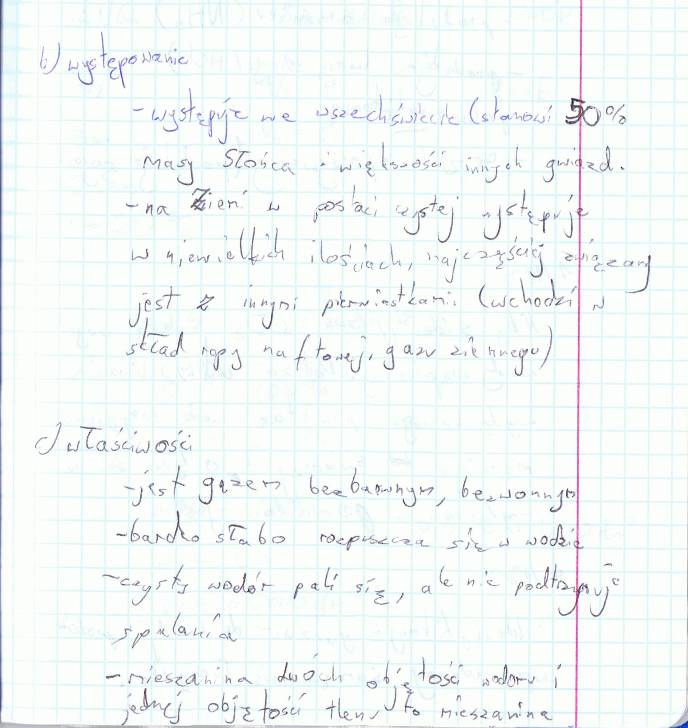 b) występowanie
- występuje we wszechświecie (stanowi 50%
masy Słońca i większości innych gwiazd.
- na Ziemi w postaci czystej występuje
w niewielkich ilościach, najczęściej związany
jest z innymi pierwiastkami (wchodzi w
skład ropy naftowej, gazu ziemnego)
c) właściwości
- jest gazem bezbarwnym, bezwonnym
- bardzo słabo rozpuszcza się w wodzie
- czysty wodór pali się, ale nie podtrzymuje
spalania
- mieszanina dwóch objętości wodoru i
jednej objętości tlenu to mieszanina